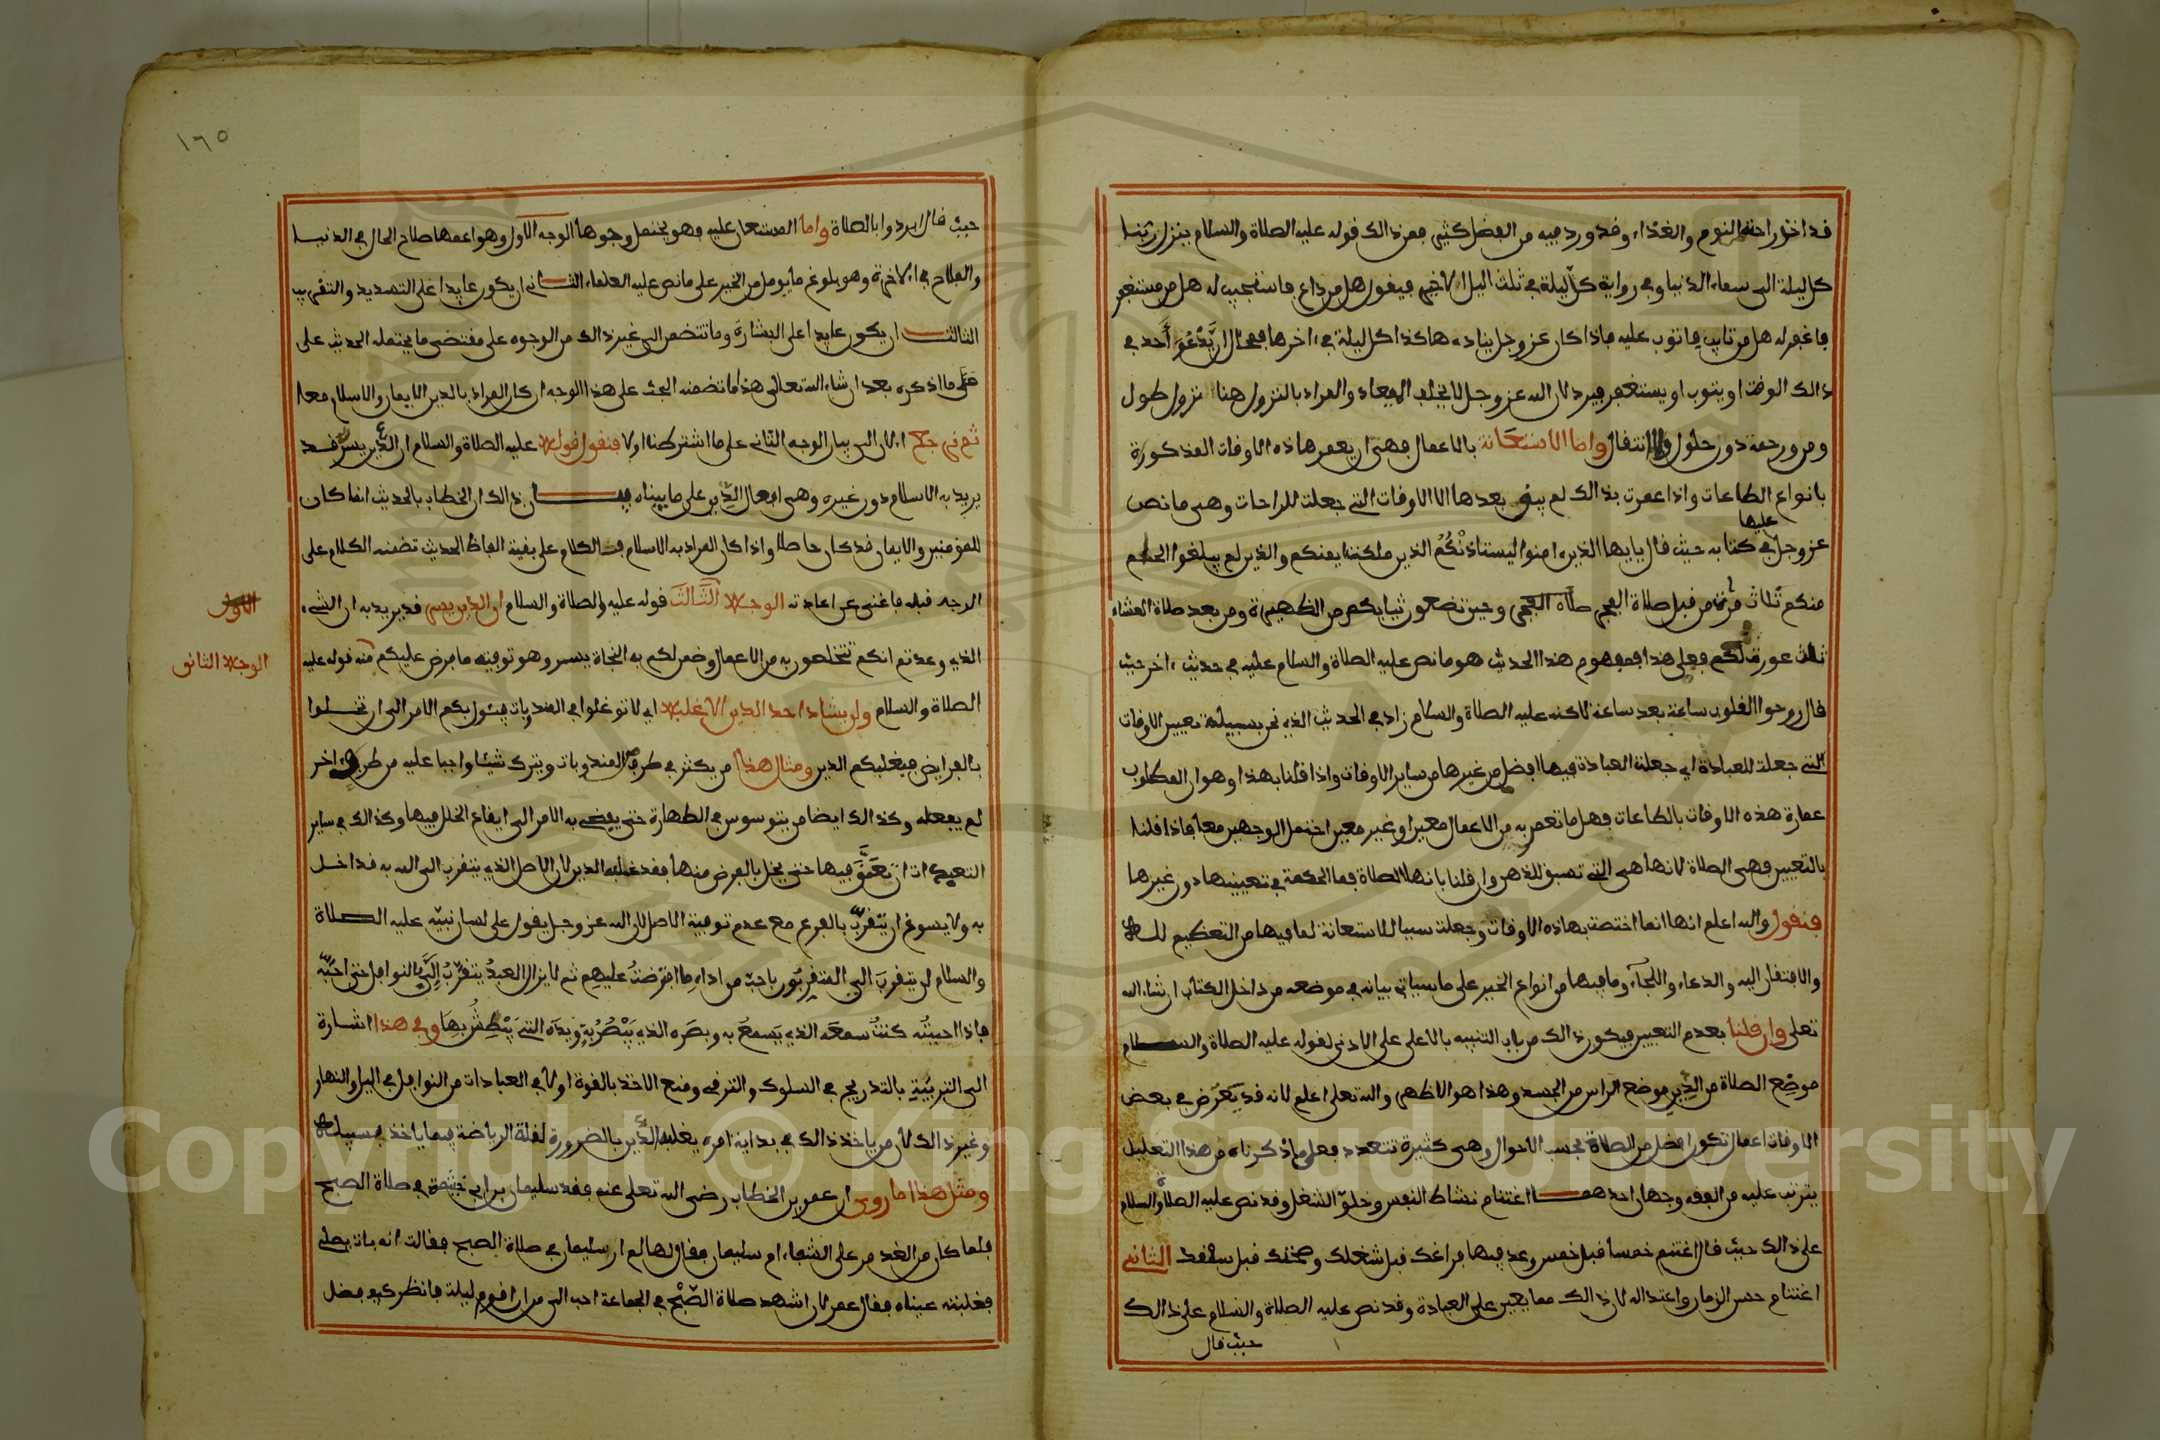 قد اخذ راحة النوم والغذاء وقد ورد فيه من الفضل كثير فمن ذالك قوله عليه الصلاة والسلام ينزل ربنا
كل ليلة الى سماء الدنيا وفي رواية كل ليلة في ثلث اليل الاخير فيقول هل من داع فاستجيب له هل من مستغفر
فاغفر له هل من تايب فاتوب عليه فاذا كان عز وجل ينادي هاكذا كل ليلة في ءاخرها فمحال ان يَّدْعُوَ أَحد في
ذالك الوقت او يتوب او يستغفر فيرد لان الله عز وجل لا يخلف الميعاد والمراد بالنزول هنا نزول طول
ومن ورحمة دون حلول ولا انتقال واما الاستعانة بالاعمال فهي ان يعمر هاذه الاوقات المذكورة
بانواع الطاعات واذا عمرت بذالك لم يبق بعدها الا الاوقات التي جعلت للراحات وهي ما نص
عليها
عز وجل في كتابه حيث قال يايها الذين ءامنوا ليستاذنْكُمُ الذين ملكت ايمنكم والذين لم يبلغوا الحلم
منكم ثلاث مرات من قبل صلاة الفجر صلاة الفجر وحين تضعون ثيابكم من الظهيرة ومن بعد صلاة العشاء
ثلاث عورات لكم فعلى هذا فمفهوم هذا الحديث هو ما نص عليه الصلاة والسلام عليه في حديث ءاخر حيث
قال روحوا القلوب ساعة بعد ساعة لاكنه عليه الصلاة والسلام زاد في الحديث الذي نحن بسبيله تعيين الاوقات
التي جعلت للعبادة اي جعلت العبادة فيها افضل من غيرها من ساير الاوقات واذا قلنا بهذا وهو ان المطلوب
عمارة هذه الاوقات بالطاعات فهل ما تعمر به من الاعمال معين او غير معين احتمل الوجهين معا فاذا قلنا
بالتعيين فهي الصلاة لانها هي التي تسبق للذهن وان قلنا بانها الصلاة فما الحكمة في تعيينها دون غيرها
فنقول والله اعلم انها انما اختصت بهاذه الاوقات وجعلت سببا للاستعانة لما فيها من التعظيم لله
والافتقار اليه والدعاء واللجأ وما فيها من انواع الخير على ما سياتي بيانه في موضعه من داخل الكتاب ان شاء الله
تعلى وان قلنا بعدم التعيين فيكون ذالك من باب التنبيه بالاعلى على الادنى لقوله عليه الصلاة والسلام
موضِع الصلاة من الدِين موضع الراس من الجسد وهذا هو الاظهر والله تعلى اعلم لانه قد يَعْرض في بعض
الاوقات اعمال تكون افضل من الصلاة بحسب الاحوال وهي كثيرة تتعدد فعلى ما ذكرناه من هذا التعليل
يترتب عليه من الفقه وجهان احدهما اغتنام نشاط النفس وخلوّ الشغل وقد نص عليه الصلاة والسلام
على ذالك حيث قال اغتنم خمسا قبل خمس وعد فيها فراغك قبل شغلك وصحتك قبل سقمك الثاني
اغتنام حسن الزمان واعتداله لان ذالك مما يعين على العبادة وقد نص عليه الصلاة والسلام على ذالك
حيث قال
١٦٥
حيث قال ابردوا بالصلاة واما المستعان عليه فهو يحتمل وجوها الوجه الاول وهو اعمها صلاح الحال في الدنيا
والفلاح في الاخرة وهو بلوغ ما يومل من الخير على ما نص عليه العلماء الثاني ان يكون عايدا على التسديد والتقريب
الثالث ان يكون عايدا على البشارة وما تتضمن الى غير ذالك من الوجوه على مقتضى ما يحتمله الحديث على
على ما اذكره بعد ان شاء الله تعالى هذا ما تضمنه البحث على هذا الوجه ان كان المراد بالدين الايمان والاسلام معا
ثم نرجع الان الى بيان الوجه الثاني على ما اشترطنا اولا فنقول قوله عليه الصلاة والسلام ان الدين يسر قد
يريد به الاسلام دون غيره وهي افعال الدِين على ما بيناه بيان ذالك ان الخطاب بالحديث انما كان
للمومنين والايمان قد كان حاصلا واذا كان المراد به الاسلام فالكلام على بقية الفاظ الحديث تضمنه الكلام على
الوجه قبله فاغنى عن اعادته الوجه الثَّالث قوله عليه الصلاة والسلام ان الدين يسر قد يريد به ان الشيء
الاول
الوجه الثاني
الذي وعدتم انكم تتخلصون به من الاعمال وضمن لكم به النجاة يسر وهو توفيته ما فرض عليكم منه قوله عليه
الصلاة والسلام ولن يشاد احد الدين الا غلبه اي لا توغلوا في المندوبات فيئول بكم الامر الى ان تخلوا
بالفرايض فيغلبكم الدين ومثال هذا من يكثر في طرف المندوبات ويترك شيئا واجبا عليه من طرف ءاخر
لم يفعله وكذالك ايضا من يتوسوس في الطهارة حتى يفضي به الامر الى ايقاع الخلل فيها وكذالك في ساير
التعبدات ان تَعَمَّقَ فيها حتى يخل بالفرض منها فقد غلبه الدين لان الاصل الذي يتقرب الى الله به قد اخل
به ولا يسوغ ان يَتَقربّ بالفرع مع عدم توفية الاصل لان الله عز وجل يقول على لسان نبيّه عليه الصلاة
والسلام لن يتقربَ الي المتقرِبُون باحبّ من اداءِ ما افترضتُ عليهِم ثم لا يزال العبدُ يتقرّبُ إليَّ بالنوافل حتى احبّه
فاذا احببتُه كنتُ سمعَه الذي يَسمعُ به وبصَره الذي يَبْصُرُ بهِ ويدَه التي يَبْطِشُ بِهَا وفي هذا اشارة
الى التربيّة بالتدريج في السلوك والترقي ومنع الاخذ بالقوة اولا في العبادات من النوافل في اليل والنهار
وغير ذالك لان من ياخذ ذالك في بداية امره يغلبه الدّين بالضرورة لقلة الرياضة فيما ياخذ بسبيله
ومثل هذا ما روي ان عمر بن الخطاب رضي الله تعلى عنه فقد سليمان بن ابي حَثْمة في صلاة الصبح
فلما كان من الغد مر على الشفاء ام سليمان فقال لها لم ار سليمان في صلاة الصبح فقالت انه بات يصلي
فغلبته عيناه فقال عمر لان اشهد صلاة الصّبْح في الجماعة احب الي من ان اقوم ليلة فانظر كيف فضل
Copyright © King Saud University